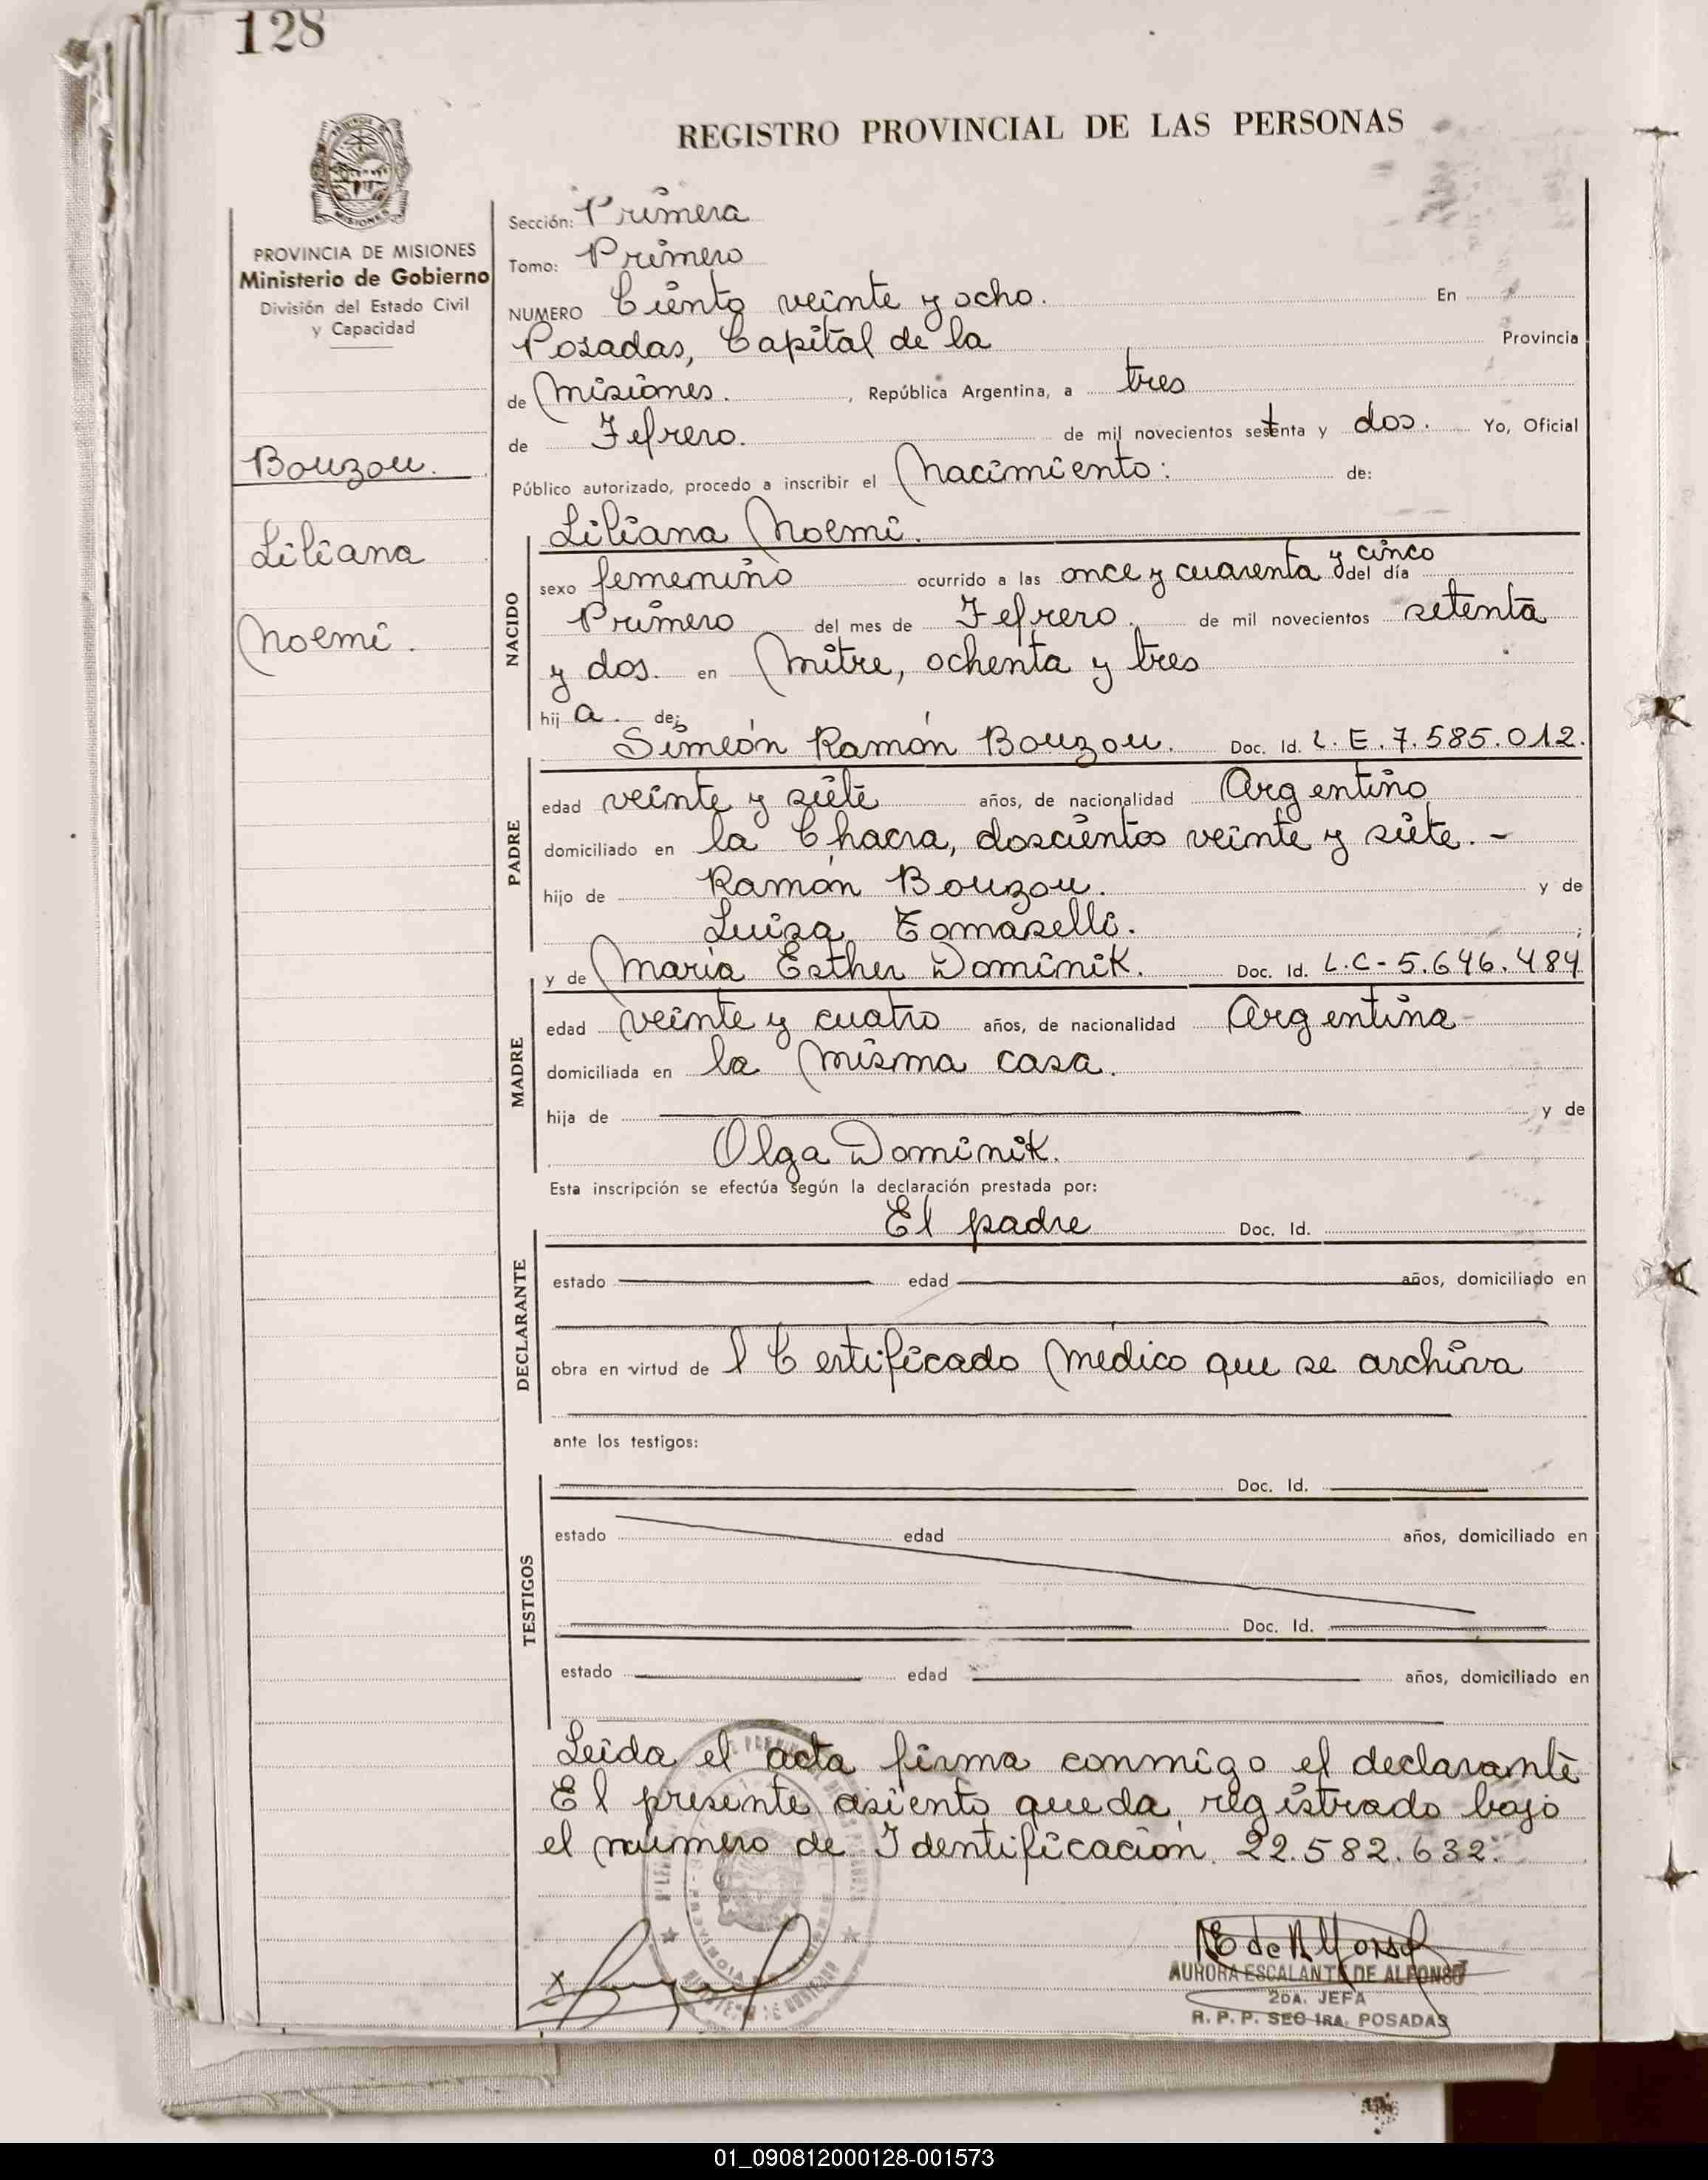 128
REGISTRO PROVINCIAL DE LAS PERSONAS
MISIONES
PROVINCIA DE MISIONES
Ministerio de Gobierno
División del Estado Civil
y Capacidad
Bouzou.
Liliana
Noemi.
Sección: Primera
Tomo: Primero
NUMERO Ciento veinte y ocho. En
Posadas, Capital de la Provincia
de Misiones. , República Argentina, a tres
de Febrero. de mil novecientos setenta y dos. Yo, Oficial
Público autorizado, procedo a inscribir el Nacimiento: de:
Liliana Noemi.
NACIDO
sexo femenino ocurrido a las once y cuarenta y cinco del día
Primero del mes de Febrero. de mil novecientos setenta
y dos. en Mitre, ochenta y tres
hij a. de;
Simeón Ramón Bouzou. Doc. Id. L.E.7.585.012.
PADRE
edad veinte y siete años, de nacionalidad Argentino
domiciliado en la Chacra, doscientos veinte y siete.-
hijo de Ramón Bouzou. y de
Luisa Tomaselli. ;
y de María Esther Dominik. Doc. Id. L.C-5.646.484
MADRE
edad veinte y cuatro años, de nacionalidad Argentina
domiciliada en la misma casa.
hija de y de
Olga Dominik.
Esta inscripción se efectúa según la declaración prestada por:
El padre Doc. Id.
DECLARANTE
estado edad años, domiciliado en
obra en virtud de l Certificado Medico que se archiva
ante los testigos:
Doc. Id.
TESTIGOS
estado edad años, domiciliado en
Doc. Id.
estado edad años, domiciliado en
Leida el acta firma conmigo el declarante
El presente asiento queda registrado bajo
el número de Identificación 22.582.632.
AURORA ESCALANTE DE ALFONSO
2DA. JEFA
R. P. P. SEC 1RA. POSADAS
01_090812000128-001573